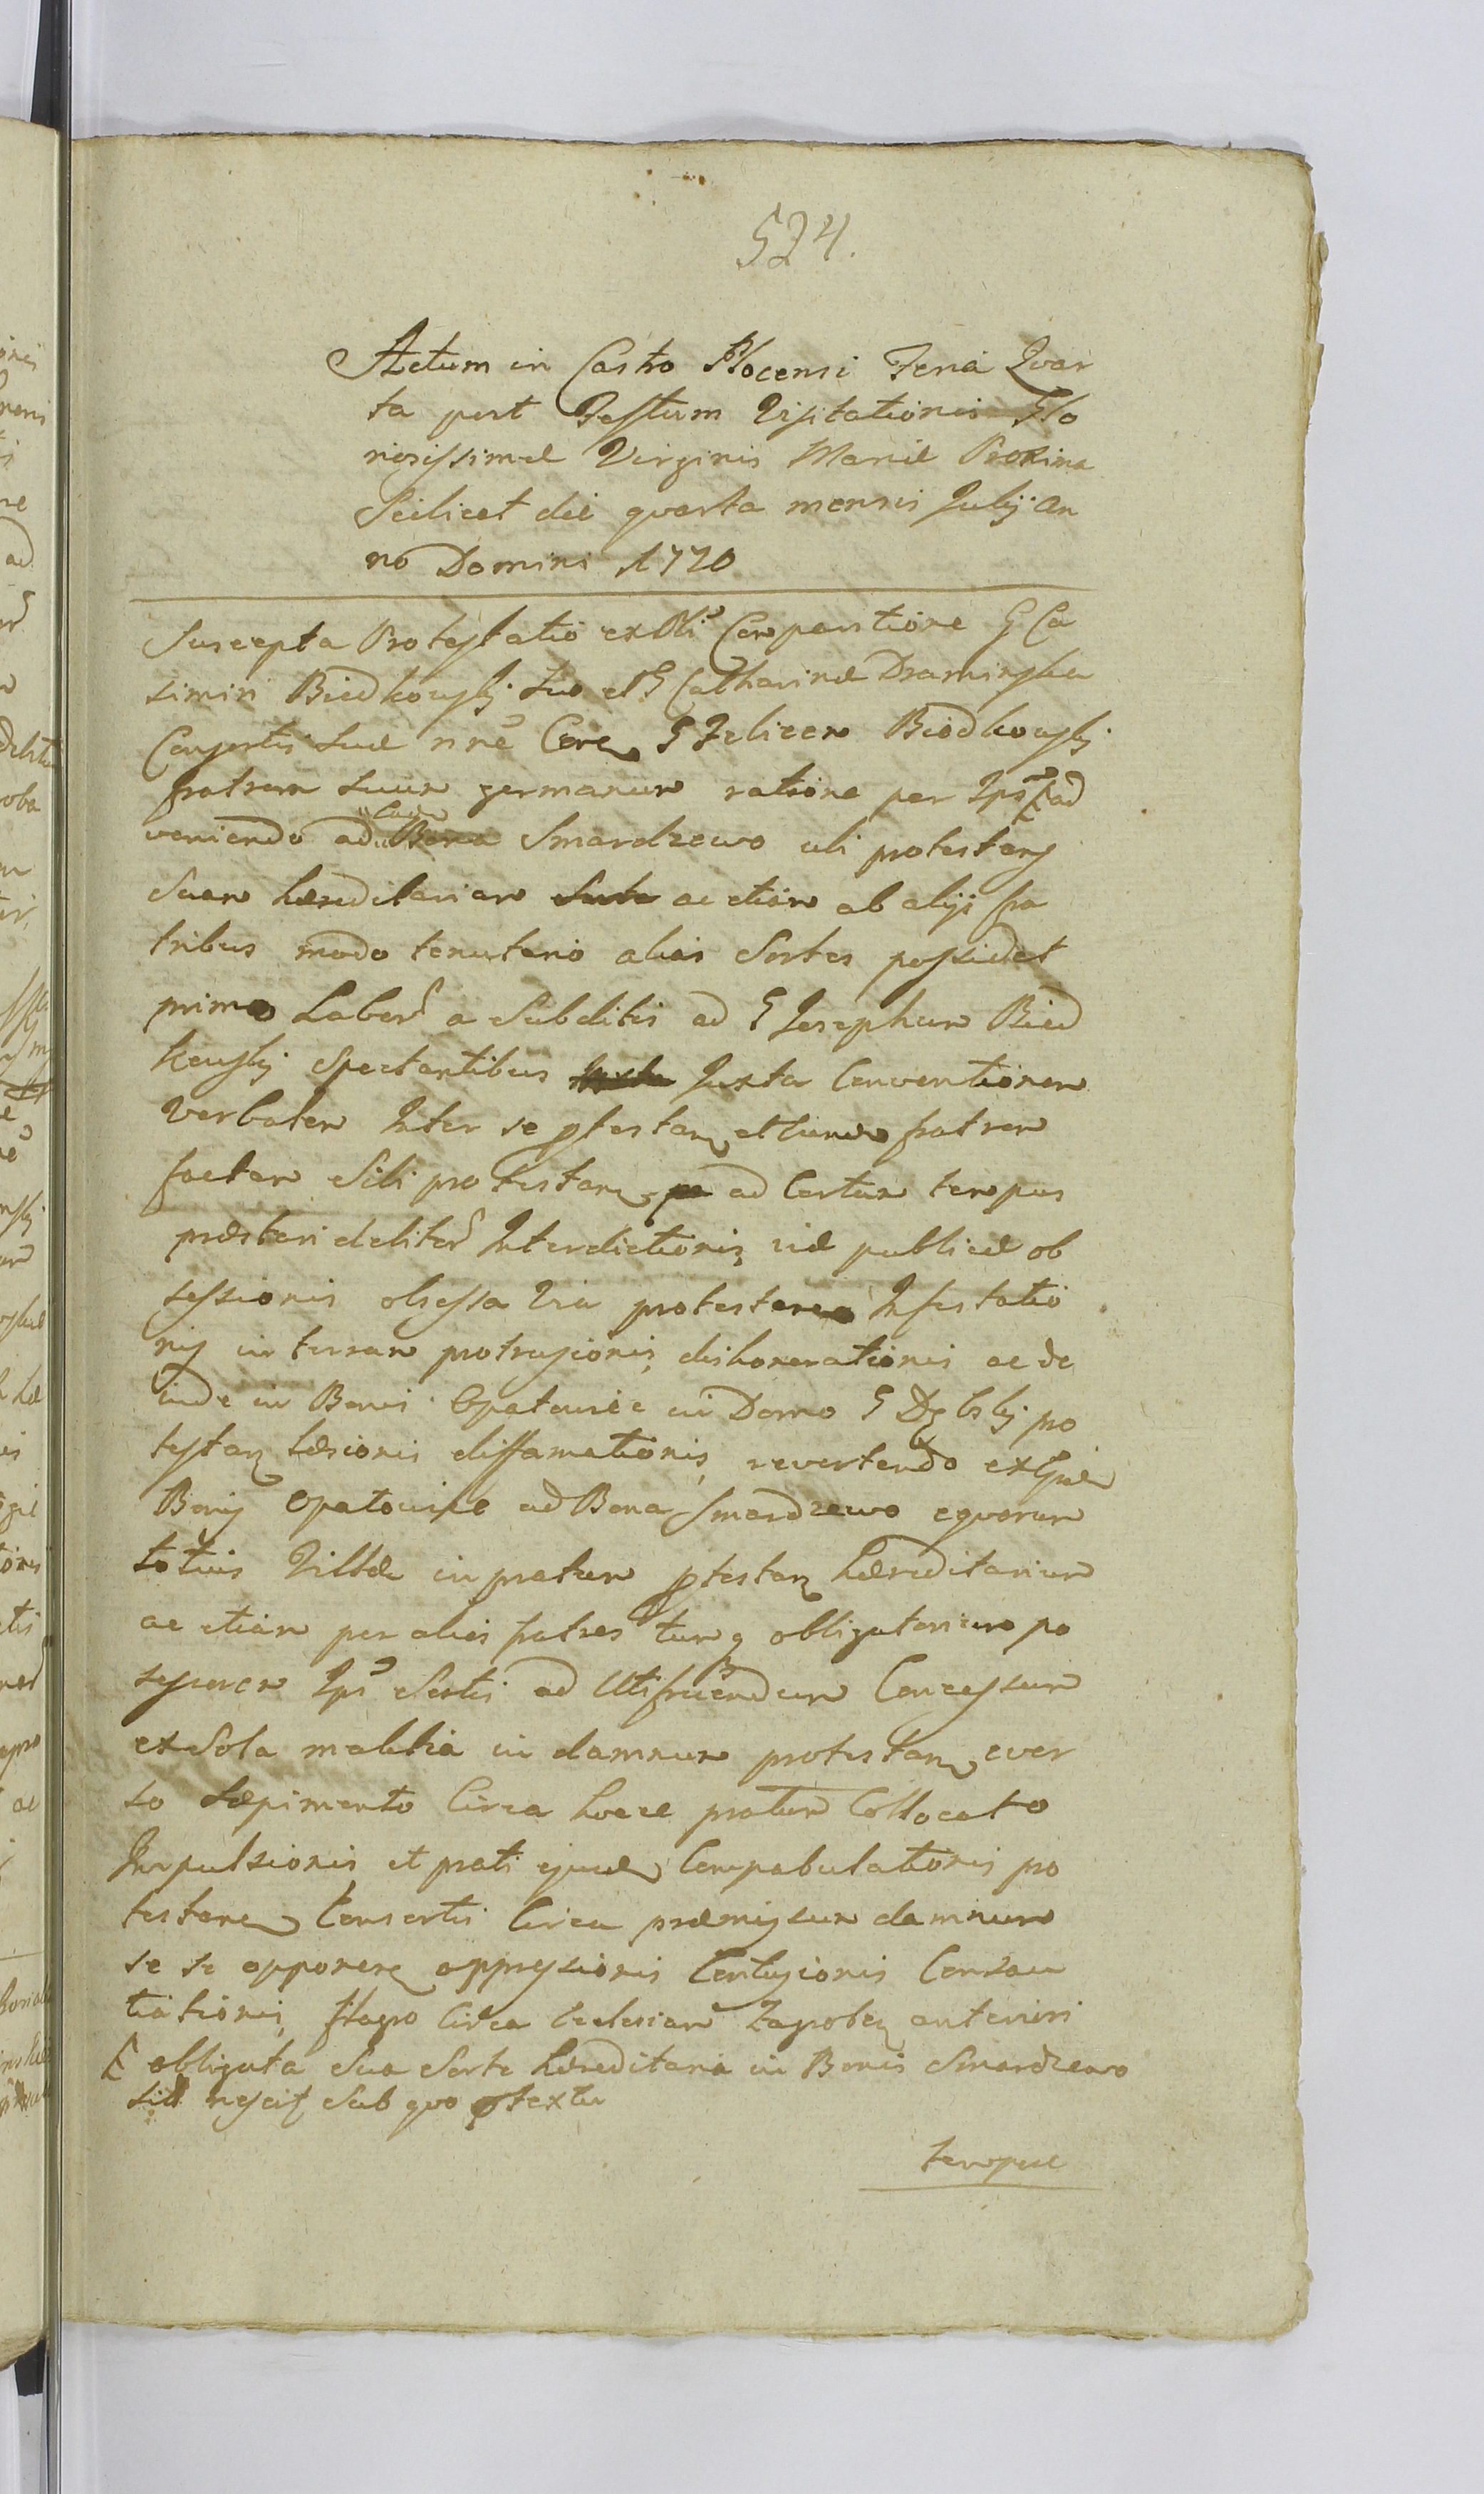 524.
Actum in Castro Plocensi Feria Qvar
ta post Festum Visitationis Glo
riosissimæ Virginis Mariæ Proxima
Scilicet die qvarta mensis Julij an
no Domini 1770
Suscepta Protestatio ex Obli Comparitione G Ca
simiri Biedkowskj suo et G Catharinæ Dramińska
Conjugis suæ nne Cora G Felicem Biedkowskj
fratrem suum germanum ratione per Ips ad
veniendo ad Smardzewo ubi protestans
Suam hæreditariam ac etiam ab alijs fra
tribus modo tenutario alias Sortes possidet
primo Labor a Subditis ad G Josephum Bied
kowskj Spectantibus Juxta Conventionem
Verbalem Inter se ptestan et eundem fratrem
factam Sibi protestan ad Certum tempus
præstari debitor Interdictionis viæ publicæ ob
sessionis obsessa Via protestare Infestatio
nis in terram protrusionis dishonerationis ac de
inde in Bonis Opatowiec in Domo G pro
testan læsionis diffamationis revertendo ex
Bonis Opatowiec ad Bona Smardzewo eqvorum
totius Villæ in pratum ptestan hæreditarium
ac etiam per alios fratres obligatorium po
ssessorem Ips Sortis ad Utifruendum Concessum
ex Sola malitia in damnum protestan ever
so sæpimento Circa hocce pratum Collocato
Impulsionis et prati ejusd Compabulationis pro
testane Consortis Circa præmissum damnum
se se opponen oppressionis Contusionis Consau
tiationis flagro Circa Ecclesiam anteriori
obligata Sua Sorte hæreditaria in Bonis Smardzewo
sibi nescit Sub quo ptextu
tempus